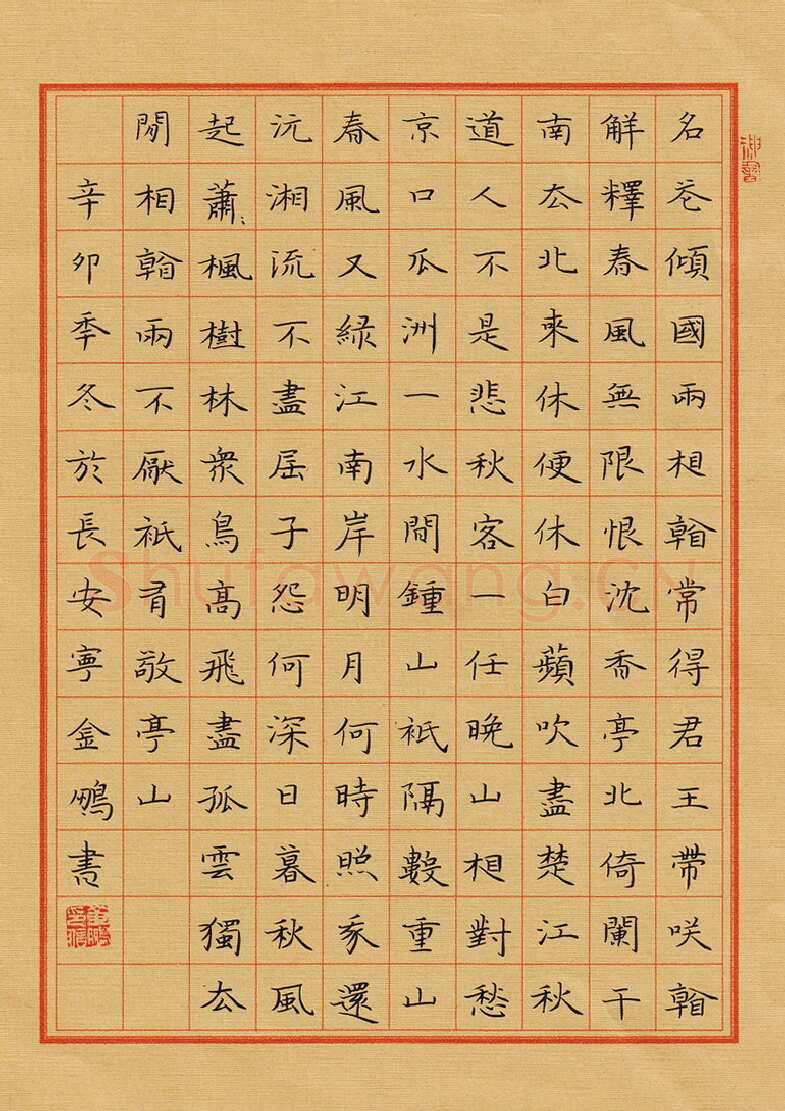 名花傾國兩相看常得君王帶咲看
解釋春風無限恨沈香亭北倚闌干
南去北來休便休白蘋吹盡楚江秋
道人不是悲秋客一任晚山相對愁
京口瓜洲一水間鍾山衹隔數重山
春風又綠江南岸明月何時照我還
沅湘流不盡屈子怨何深日暮秋風
起蕭〻楓樹林衆鳥高飛盡孤雲獨去
閒相看兩不厭衹有敬亭山
辛卯季冬於長安寧金鵬書
Shufawang.CN